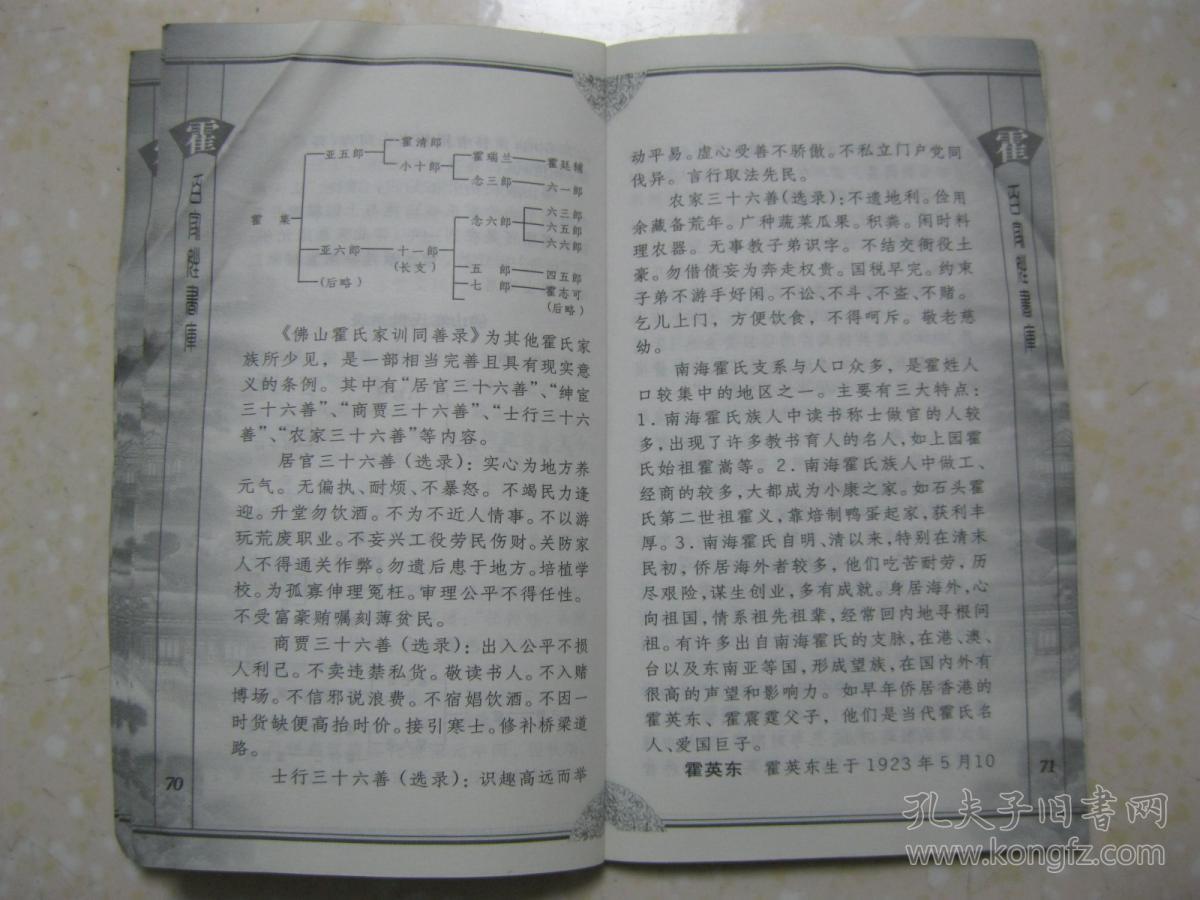 霍
百家姓書庫
亚五郎 霍清郎
小十郎 霍瑞兰 霍廷辅
念三郎 六一郎
霍 集
念六郎 六三郎
六五郎
六六郎
亚六郎 十一郎
(长支)
五 郎 四五郎
七 郎 霍志可
(后略) (后略)
《佛山霍氏家训同善录》为其他霍氏家
族所少见，是一部相当完善且具有现实意
义的条例。其中有“居官三十六善”、“绅宦
三十六善”、“商贾三十六善”、“士行三十六
善”、“农家三十六善”等内容。
居官三十六善(选录)：实心为地方养
元气。无偏执、耐烦、不暴怒。不竭民力逢
迎。升堂勿饮酒。不为不近人情事。不以游
玩荒废职业。不妄兴工役劳民伤财。关防家
人不得通关作弊。勿遗后患于地方。培植学
校。为孤寡伸理冤枉。审理公平不得任性。
不受富豪贿嘱刻薄贫民。
商贾三十六善(选录)：出入公平不损
人利己。不卖违禁私货。敬读书人。不入赌
博场。不信邪说浪费。不宿娼饮酒。不因一
时货缺便高抬时价。接引寒士。修补桥梁道
路。
士行三十六善(选录)：识趣高远而举
70
动平易。虚心受善不骄傲。不私立门户党同
伐异。言行取法先民。
农家三十六善(选录)：不遗地利。俭用
余藏备荒年。广种蔬菜瓜果。积粪。闲时料
理农器。无事教子弟识字。不结交衙役土
豪。勿借债妄为奔走权贵。国税早完。约束
子弟不游手好闲。不讼、不斗、不盗、不赌。
乞儿上门，方便饮食，不得呵斥。敬老慈
幼。
南海霍氏支系与人口众多，是霍姓人
口较集中的地区之一。主要有三大特点：
1．南海霍氏族人中读书称士做官的人较
多，出现了许多教书育人的名人，如上园霍
氏始祖霍嵩等。2．南海霍氏族人中做工、
经商的较多，大都成为小康之家。如石头霍
氏第二世祖霍义，靠焙制鸭蛋起家，获利丰
厚。3．南海霍氏自明、清以来，特别在清末
民初，侨居海外者较多，他们吃苦耐劳，历
尽艰险，谋生创业，多有成就。身居海外，心
向祖国，情系祖先祖辈，经常回内地寻根问
祖。有许多出自南海霍氏的支脉，在港、澳、
台以及东南亚等国，形成望族，在国内外有
很高的声望和影响力。如早年侨居香港的
霍英东、霍震霆父子，他们是当代霍氏名
人、爱国巨子。
霍英东 霍英东生于1923年5月10
71
霍
百家姓書庫
孔夫子旧书网
www.kongfz.com